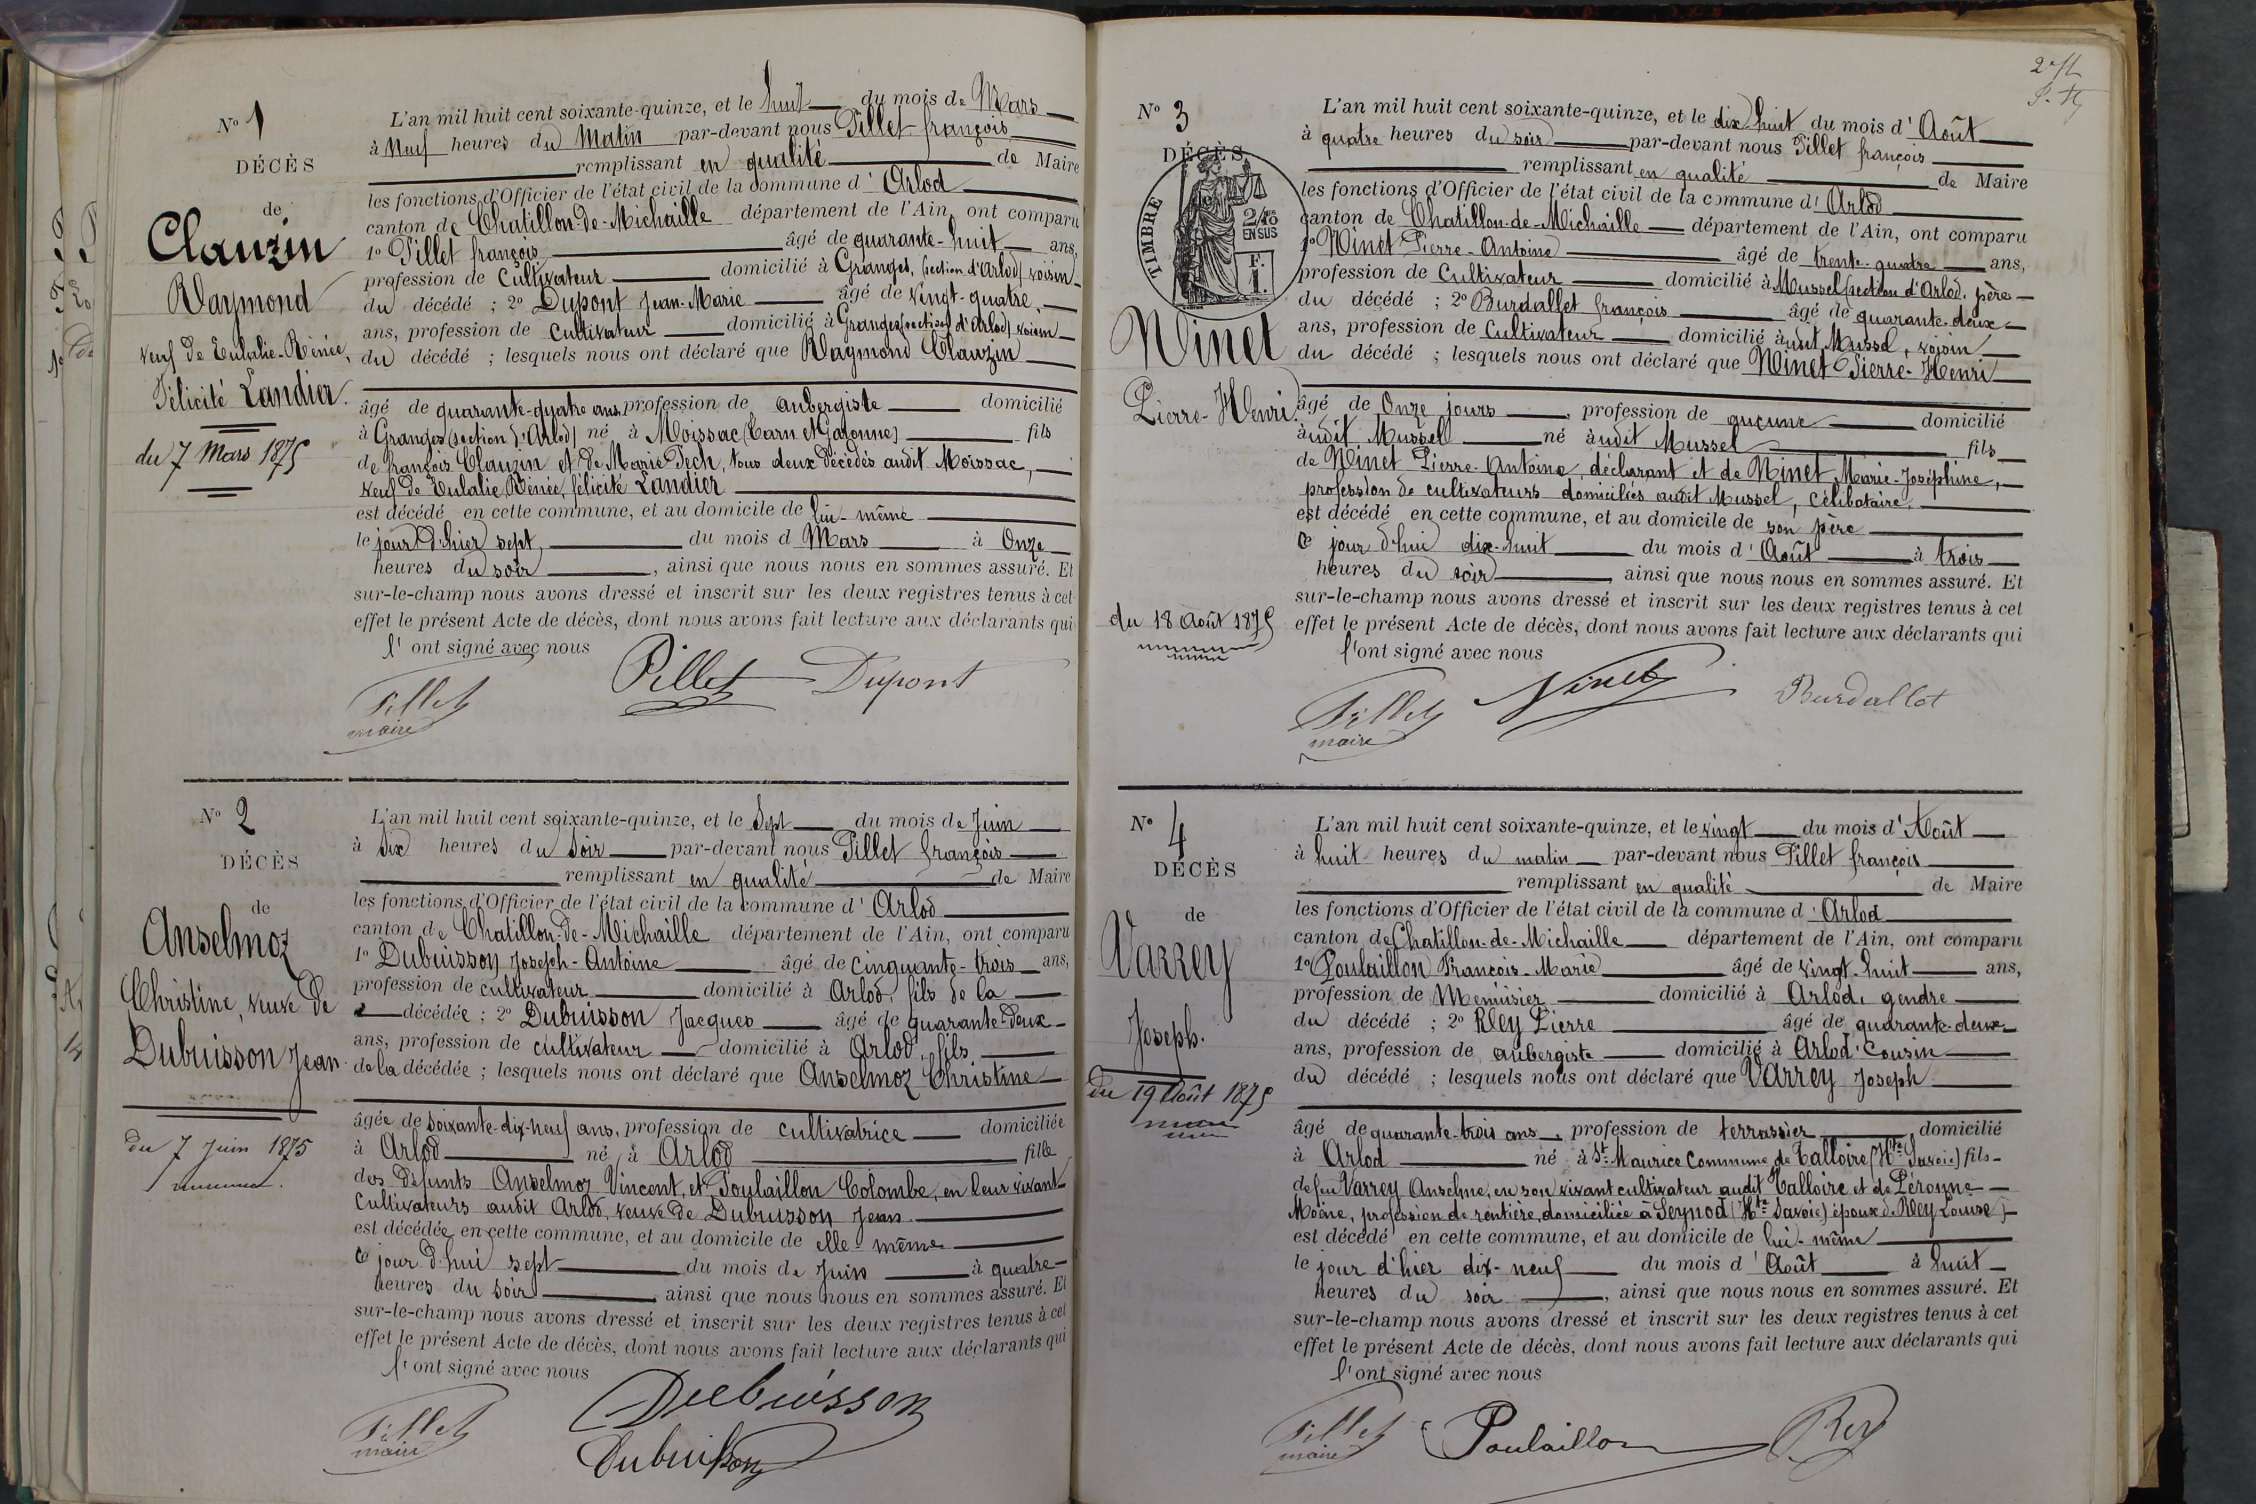 N° 1
DÉCÈS
de
Clauzin
Raymond
veuf de Eulalie-Rénée,
Félicité Landier.
du 7 Mars 1875
L'an mil huit cent soixante-quinze, et le huit du mois de Mars
à Neuf heures du Matin par-devant nous Pillet françois
remplissant en qualité de Maire
les fonctions d'Officier de l'état civil de la commune d'Arlod
canton de Chatillon-de-Michaille département de l'Ain, ont comparu
1° Pillet françois âgé de quarante-huit ans,
profession de Cultivateur domicilié à Granges, (section d'Arlod) voisin
du décédé ; 2° Dupont Jean-Marie âgé de vingt-quatre
ans, profession de cultivateur domicilié à Granges (section d'Arlod) voisin
du décédé ; lesquels nous ont déclaré que Raymond Clauzin
âgé de quarante-quatre ans, profession de aubergiste domicilié
à Granges (section d'Arlod) né à Moissac (Tarn et Garonne) fils
de françois Clauzin et de Marie Pech, tous deux décédés audit Moissac,
veuf de Eulalie, Rénée, félicité Landier
est décédé en cette commune, et au domicile de lui-même
le jour d'hier sept, du mois d Mars à Onze
heures du soir, ainsi que nous nous en sommes assuré. Et
sur-le-champ nous avons dressé et inscrit sur les deux registres tenus à cet
effet le présent Acte de décès, dont nous avons fait lecture aux déclarants qui
l'ont signé avec nous
Pillet Dupont
Pillet
maire
N° 2
DÉCÈS
de
Anselmoz
Christine, veuve de
Dubuisson Jean
du 7 Juin 1875
L'an mil huit cent soixante-quinze, et le Sept du mois de Juin
à Six heures du Soir par-devant nous Pillet françois
remplissant en qualité de Maire
les fonctions d'Officier de l'état civil de la commune d'Arlod
canton de Chatillon-de-Michaille département de l'Ain, ont comparu
1° Dubuisson Joseph-Antoine âgé de cinquante-trois ans,
profession de cultivateur domicilié à Arlod, fils de la
décédée ; 2° Dubuisson Jacques âgé de quarante-deux
ans, profession de cultivateur domicilié à Arlod, fils
de la décédée ; lesquels nous ont déclaré que Anselmoz Christine
âgée de soixante-dix-neuf ans, profession de cultivatrice domiciliée
à Arlod né à Arlod fille
des défunts Anselmoz Vincent, et Poulaillon Colombe, en leur vivant
cultivateurs audit Arlod, veuve de Dubuisson Jean
est décédée en cette commune, et au domicile de elle-même
ce jour d'hui sept du mois de Juin à quatre
heures du soir, ainsi que nous nous en sommes assuré. Et
sur-le-champ nous avons dressé et inscrit sur les deux registres tenus à cet
effet le présent Acte de décès, dont nous avons fait lecture aux déclarants qui
l'ont signé avec nous
Dubuisson
Pillet
maire
Dubuisson
N° 3
DÉCÈS
TIMBRE
EN SUS
Ninet
Pierre-Henri.
du 18 Août 1875
L'an mil huit cent soixante-quinze, et le dix-huit du mois d'Août
à quatre heures du soir par-devant nous Pillet françois
remplissant en qualité de Maire
les fonctions d'Officier de l'état civil de la commune d'Arlod
canton de Chatillon-de-Michaille département de l'Ain, ont comparu
1° Ninet Pierre-Antoine âgé de trente-quatre ans,
profession de Cultivateur domicilié à Mussel (section d'Arlod, père
du décédé ; 2° Burdallet françois âgé de quarante-deux
ans, profession de Cultivateur domicilié audit Mussel, voisin
du décédé ; lesquels nous ont déclaré que Ninet Pierre-Henri
âgé de Onze jours, profession de aucune domicilié
audit Mussel né audit Mussel fils
de Ninet Pierre-Antoine, déclarant et de Ninet, Marie-Joséphine,
profession de cultivateurs domiciliés audit Mussel, célibataire.
est décédé en cette commune, et au domicile de son père
ce jour d'hui dix-huit du mois d'Août à trois
heures du soir, ainsi que nous nous en sommes assuré. Et
sur-le-champ nous avons dressé et inscrit sur les deux registres tenus à cet
effet le présent Acte de décès, dont nous avons fait lecture aux déclarants qui
l'ont signé avec nous
Ninet Burdallet
Pillet
maire
N° 4
DÉCÈS
de
Varrey
Joseph.
du 19 Août 1875
L'an mil huit cent soixante-quinze, et le vingt du mois d'Août
à huit heures du matin par-devant nous Pillet françois
remplissant en qualité de Maire
les fonctions d'Officier de l'état civil de la commune d'Arlod
canton de Chatillon-de-Michaille département de l'Ain, ont comparu
1° Poulaillon François-Marie âgé de vingt-huit ans,
profession de Menuisier domicilié à Arlod, gendre
du décédé ; 2° Rey Pierre âgé de quarante-deux
ans, profession de aubergiste domicilié à Arlod, Cousin
du décédé ; lesquels nous ont déclaré que Varrey Joseph
âgé de quarante-trois ans, profession de terrassier domicilié
à Arlod né à St Maurice Commune de Talloire (Hte Savoie) fils
de feu Varrey Anselme, en son vivant cultivateur audit Talloire et de Péronne
Moëne, profession de rentière, domiciliée à Seynod (Hte Savoie) époux de Rey Louise
est décédé en cette commune, et au domicile de lui-même
le jour d'hier dix-neuf du mois d'Août à huit
heures du soir, ainsi que nous nous en sommes assuré. Et
sur-le-champ nous avons dressé et inscrit sur les deux registres tenus à cet
effet le présent Acte de décès, dont nous avons fait lecture aux déclarants qui
l'ont signé avec nous
Pillet
maire
Poulaillon Rey